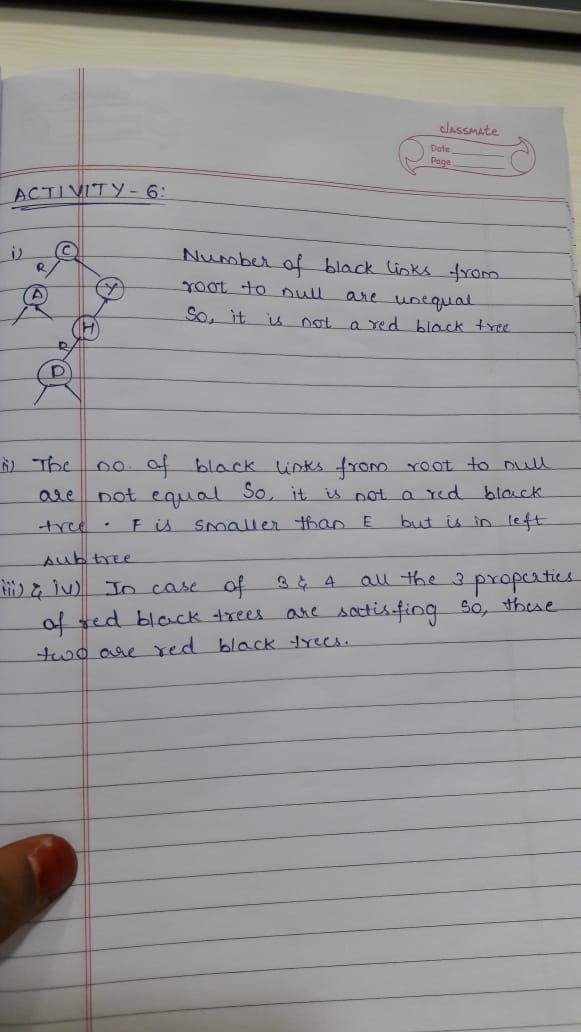 classmate
Date
Page
ACTIVITY - 6:
i)
C
R
A
Y
H
R
D
Number of black links from
root to null are unequal
So, it is not a red black tree
ii) The no. of black links from root to null
are not equal So, it is not a red black
tree. F is smaller than E but is in left
subtree
iii) & iv) In case of 3 & 4 all the 3 properties
of red black trees are satisfing so, these
two are red black trees.